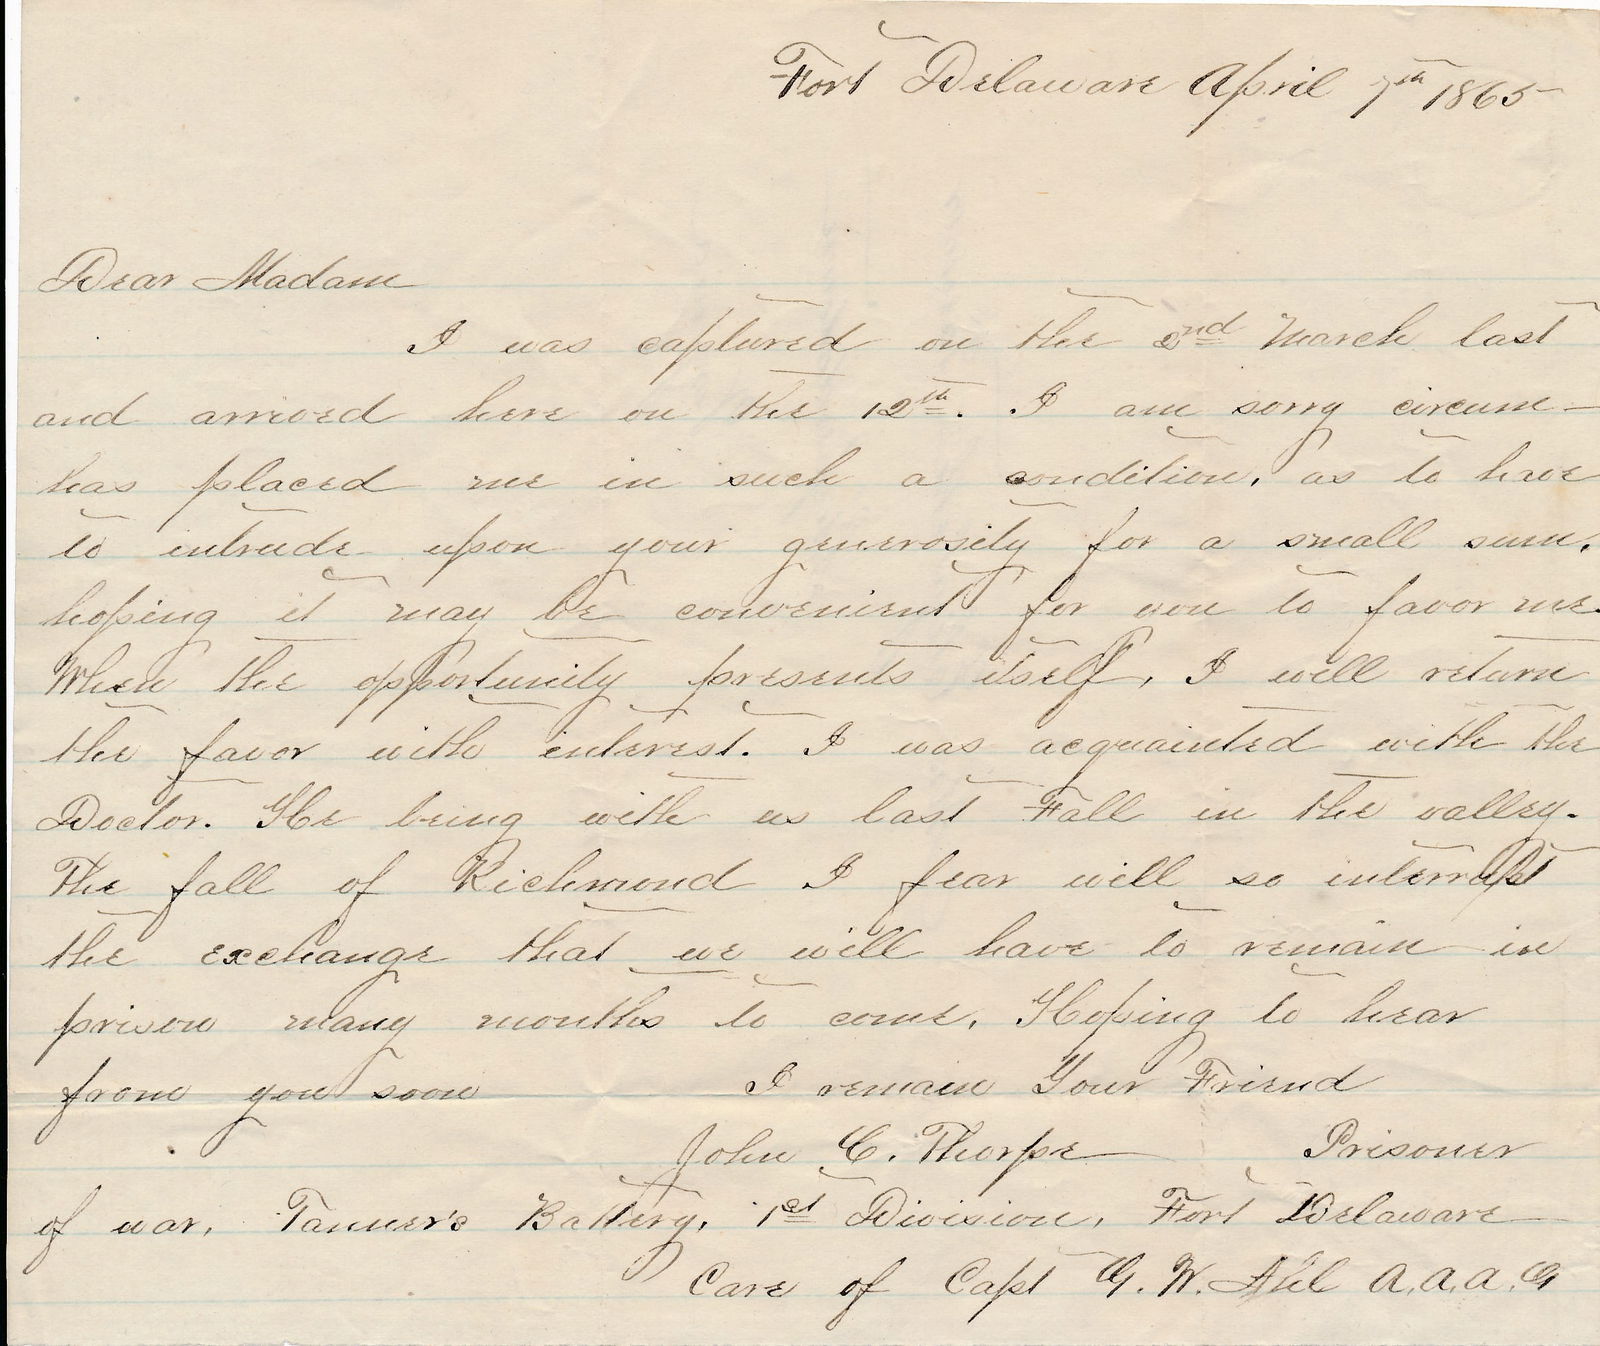 Fort Delaware April 7th 1865
Dear Madam
I was captured on the 2nd March last
and arrived here on the 12th. I am sorry circum-
has placed me in such a condition, as to have
to intrude upon your generosity for a small sum,
hoping it may be convenient for you to favor me.
When the opportunity presents itself, I will return
the favor with interest. I was acquainted with the
Doctor. He being with us last Fall in the valley.
The fall of Richmond I fear will so interrupt
the exchange that we will have to remain in
prison many months to come. Hoping to hear
from you soon I remain Your Friend
John C. Thorpe Prisoner
of war, Tanner's Battery, 1st Division, Fort Delaware
Care of Capt G. W. Ahl A.A.A.G